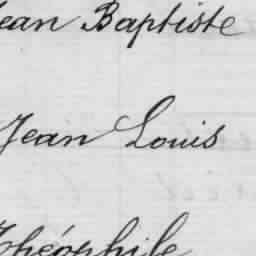 Jean Baptiste
Jean Louis
Théophile